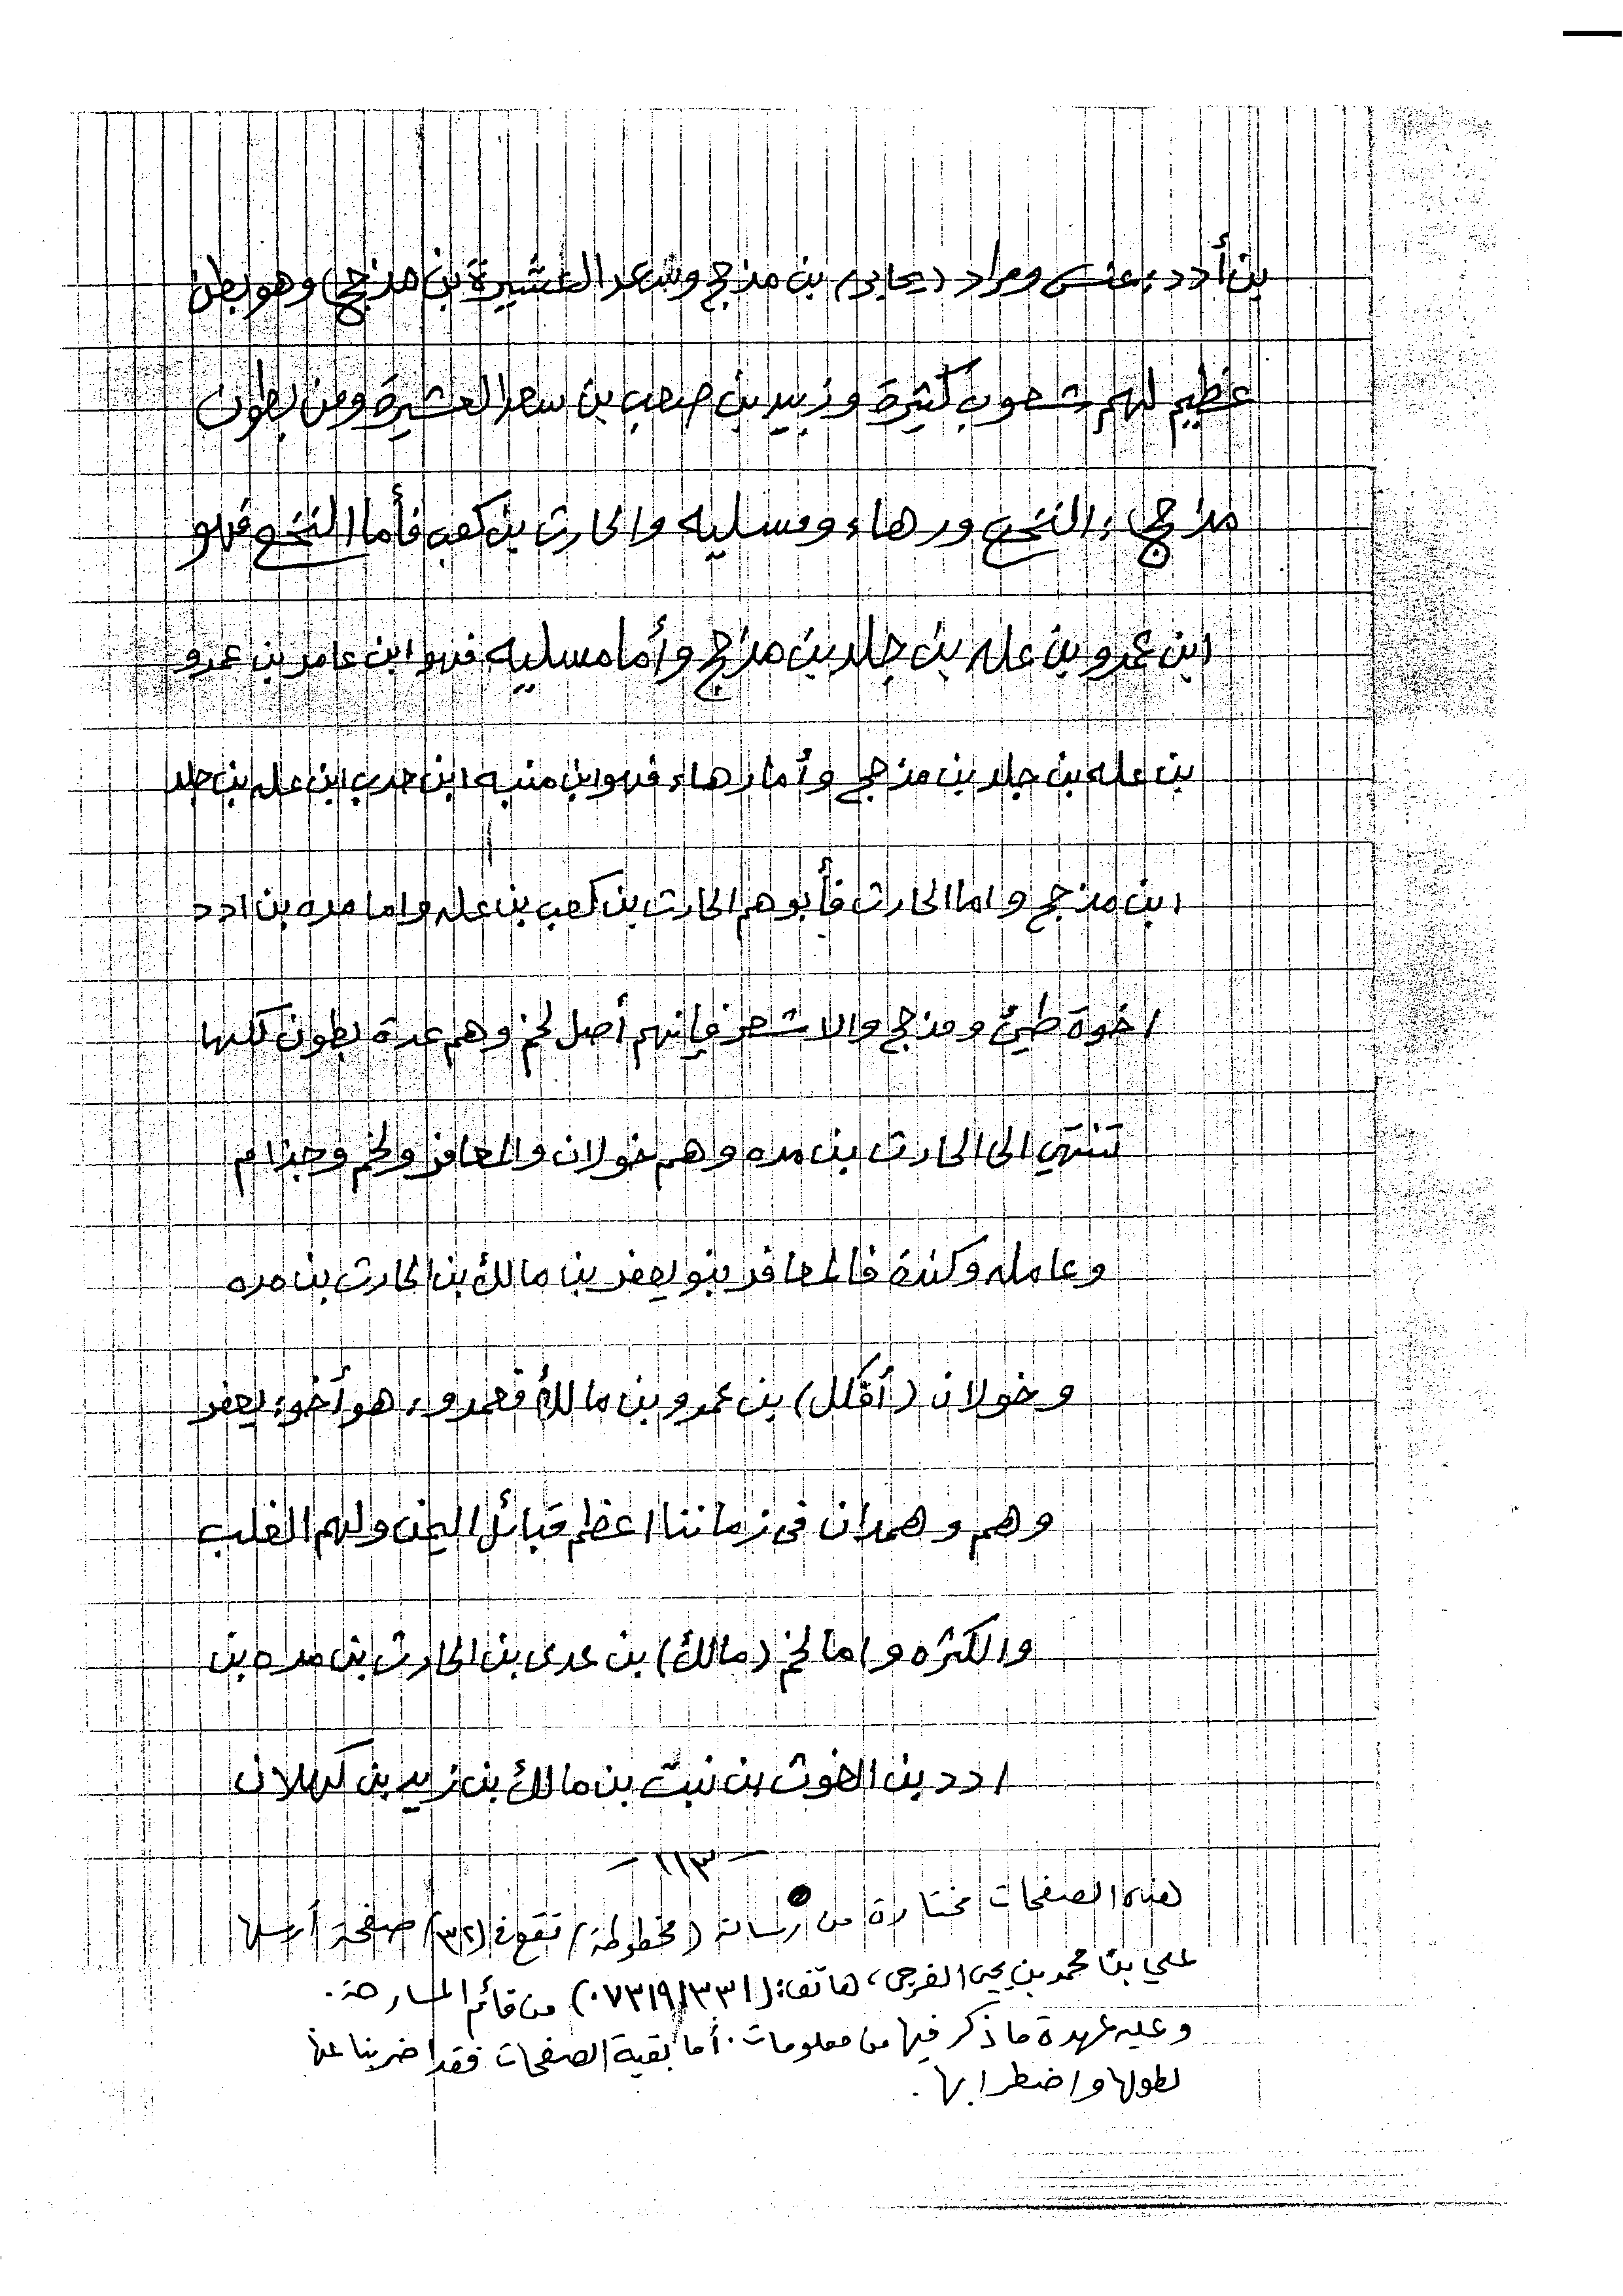 بن أدد، عنس ومراد (يحابر) بن مذحج وسعد العشيرة بن مذحج) وهو بطن
عظيم لهم شعوب كثيرة وزبيد بن صعب بن سعد العشيرة ومن بطون
مذحج، النخع ورهاء ومسليه والحارث بن كعب فأما النخع فهو
ابن عمرو بن عله بن جلد بن مذحج وأما مسليه فهو ابن عامر بن عمرو
بن عله بن جلد بن مذحج وأما رهاء فهو ابن منبه ابن حرب ابن عله بن جلد
ابن مذحج واما الحارث فأبوهم الحارث بن كعب بن عله واما مره بن ادد
اخوة طيئ ومذحج والاشعر فإنهم أصل لخم وهم عدة بطون كلها
تنتهي الى الحارث بن مره وهم خولان والمعافر ولخم وجذام
وعامله وكندة فالمعافر بنو يعفر بن مالك بن الحارث بن مره
وخولان (أفكل) بن عمرو بن مالك فعمرو، هو أخو، يعفر
وهم وهمدان في زماننا اعظم قبائل اليمن ولهم الغلب
والكثره واما لخم (مالك) بن عدى بن الحارث بن مره بن
ادد بن الغوث بن نبت بن مالك بن زيد بن كهلان
– ١١٣ –
هذه الصفحات مختارة من رسالة (مخطوطة) تقع في (٣٢) صفحة أرسلها
علي بن محمد بن يحي الفرجي، هاتف: (٠٧٣١٩١٣٣١) من قائم المسارحة.
وعليه عهدة ما ذكر فيها من معلومات. أما بقية الصفحات فقد اضربنا عنها
لطولها واضطرابها.